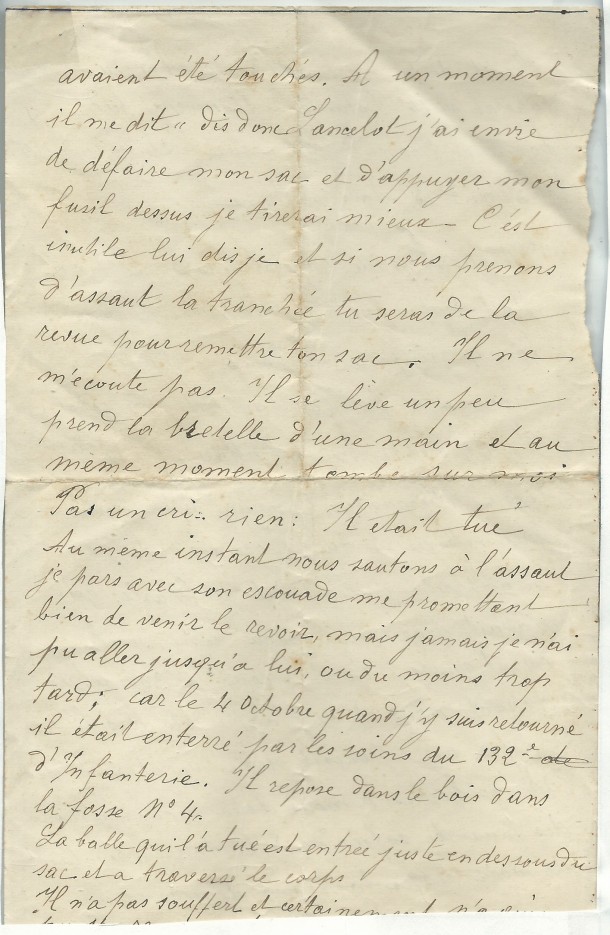 avaient été touchés. A un moment
il me dit " dis donc Lancelot j'ai envie
de défaire mon sac et d'appuyer mon
fusil dessus je tirerai mieux - C'ést
inutile lui dis je et si nous prenons
d'assaut la tranchée tu seras de la
revue pour remettre ton sac. Il ne
m'écoute pas. Il se lève un peu
prend la bretelle d'une main et au
même moment tombe sur moi
Pas un cri.. rien: Il etait tué
Au même instant nous sautons à l'assaut
je pars avec son escouade me promettant
bien de venir le revoir, mais jamais je n'ai
pu aller jusqu'a lui, ou du moins trop
tard; car le 4 octobre quand j'y suis retourné
il était enterré par les soins du 132e de
d'Infanterie. Il repose dans le bois dans
la fosse N° 4.
La balle qui l'a tué est entrée juste en dessous du
sac et a traversé le corps
Il n'a pas souffert et certainement